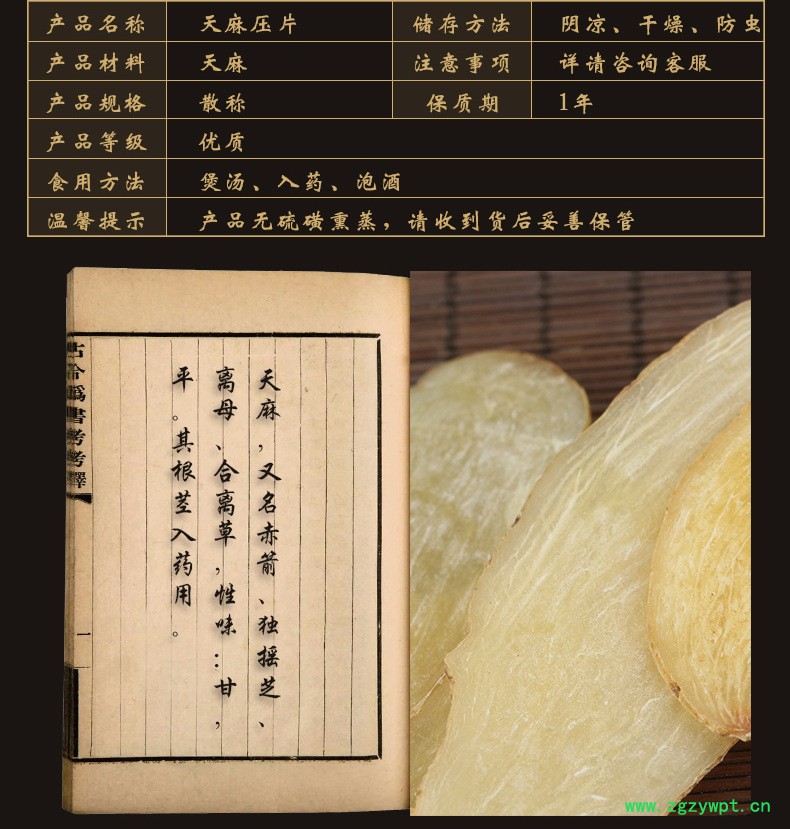 产品名称 天麻压片 储存方法 阴凉、干燥、防虫
产品材料 天麻 注意事项 详请咨询客服
产品规格 散称 保质期 1年
产品等级 优质
食用方法 煲汤、入药、泡酒
温馨提示 产品无硫磺熏蒸，请收到货后妥善保管
天麻，又名赤箭、独摇芝、
离母、合离草，性味：甘，
平。其根茎入药用。
古今偽書考考釋
一
www.zgzywpt.cn